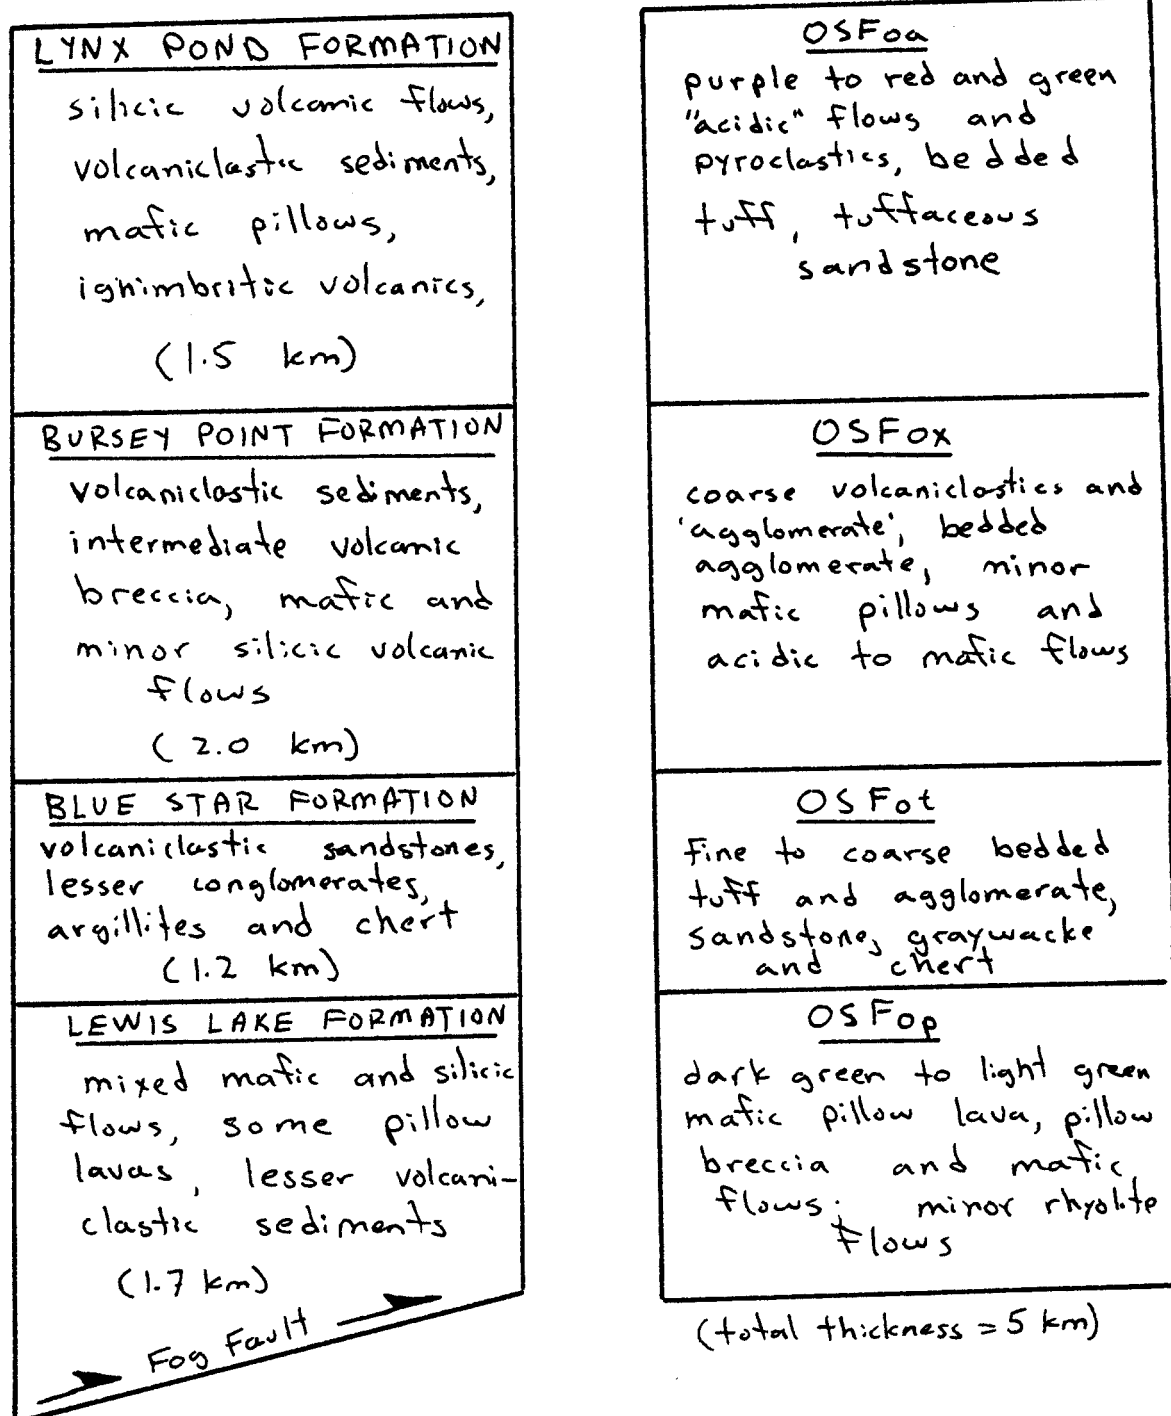 LYNX POND FORMATION
silicic volcanic flows,
volcaniclastic sediments,
mafic pillows,
ignimbritic volcanics,
(1.5 km)
BURSEY POINT FORMATION
volcaniclastic sediments,
intermediate volcanic
breccia, mafic and
minor silicic volcanic
flows
(2.0 km)
BLUE STAR FORMATION
volcaniclastic sandstones,
lesser conglomerates,
argillites and chert
(1.2 km)
LEWIS LAKE FORMATION
mixed mafic and silicic
flows, some pillow
lavas, lesser volcani-
clastic sediments
(1.7 km)
Fog Fault
OSFoa
purple to red and green
"acidic" flows and
pyroclastics, bedded
tuff, tuffaceous
sandstone
OSFox
coarse volcaniclastics and
'agglomerate', bedded
agglomerate, minor
mafic pillows and
acidic to mafic flows
OSFot
fine to coarse bedded
tuff and agglomerate,
sandstone, graywacke
and chert
OSFop
dark green to light green
mafic pillow lava, pillow
breccia and mafic
flows; minor rhyolite
flows
(total thickness = 5 km)